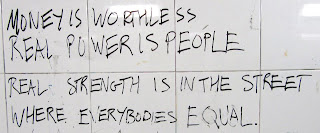 MONEY IS WORTHLESS
REAL POWER IS PEOPLE
REAL STRENGTH IS IN THE STREET
WHERE EVERYBODIES EQUAL.